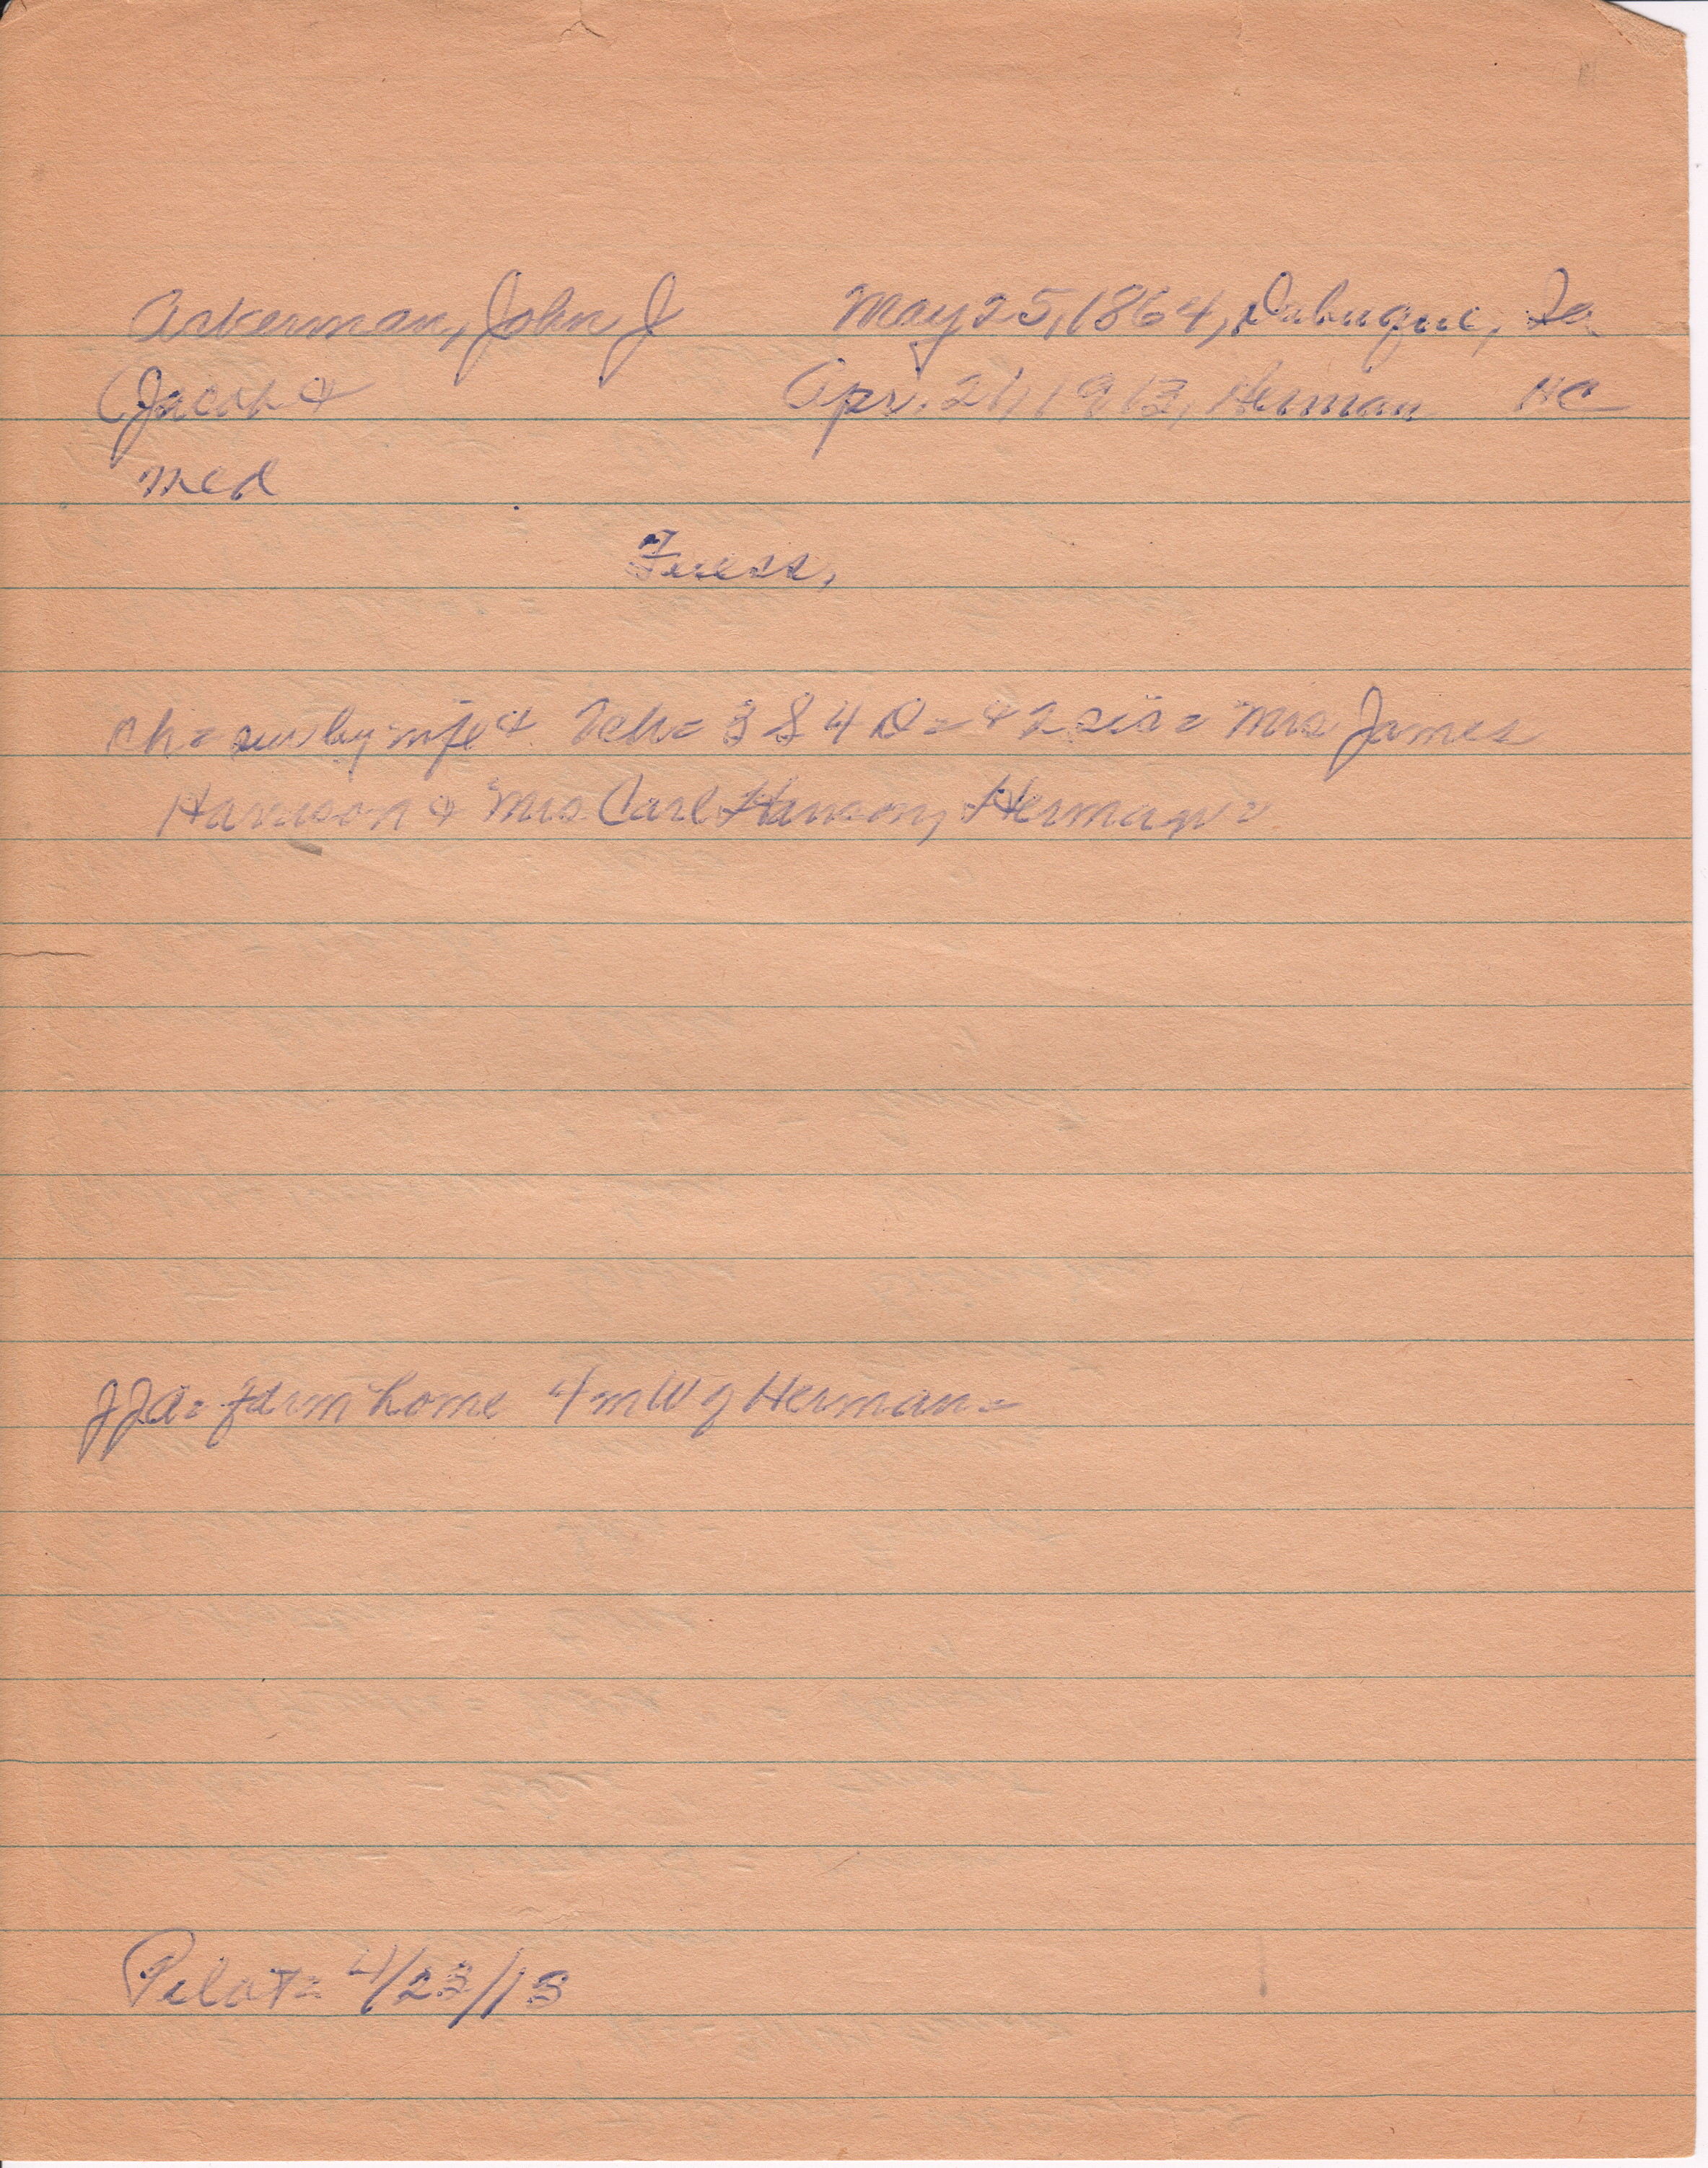 Ackerman, John J May 25, 1864, Dubuque, Ia
(Jacob & Apr. 21, 1913, Herman HC
med
Feress,
Ch = sur by wife & 7ch = 3 S 4 D = & 2 sis = Mrs James
Harrison & Mrs Carl Hanson, Herman =
JJA = farm home 4 m W of Herman =
Pilot = 4/23/13